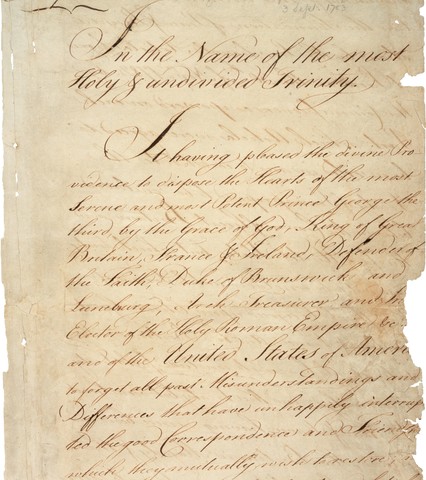 3 Sept. 1783
In the Name of the most
Holy & undivided Trinity.
It having pleased the divine Pro
vidence to dispose the Hearts of the most
Serene and most Potent Prince George the
third, by the Grace of God, King of Great
Britain, France & Ireland, Defender of
the Faith, Duke of Brunswick and
Lunebourg, Arch Treasurer and
Elector of the Holy Roman Empire &c.
and of the United States of Ameri
to forget all past Misunderstandings and
Differences that have unhappily interrup
ted the good Correspondence and Friendship
which they mutually wish to restore;